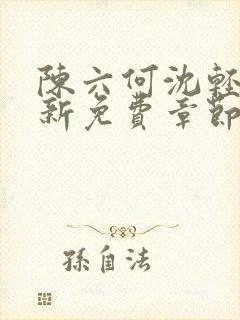 陳六何沈輕
新免費章節
孫自法